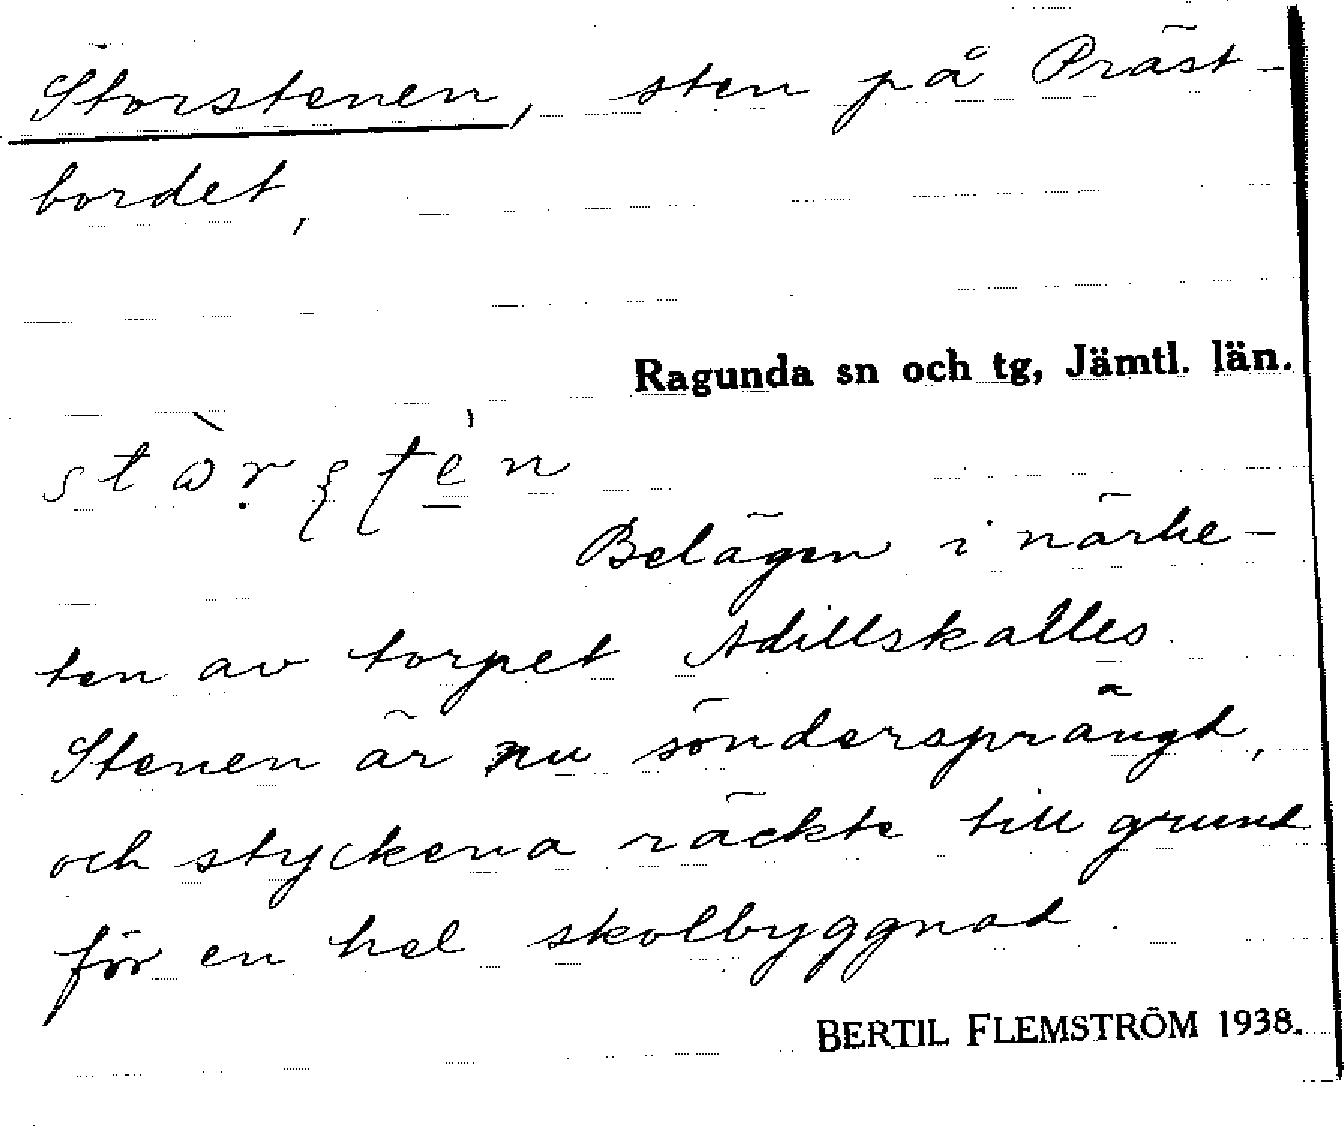 Storstenen, sten på Präst-
bordet,
Ragunda sn och tg, Jämtl. län.
Belägen i närhe-
ten av torpet Adillskalles.
Stenen är nu söndersprängd,
och styckena räckte till grund
för en hel skolbyggnad.
BERTIL FLEMSTRÖM 1938.